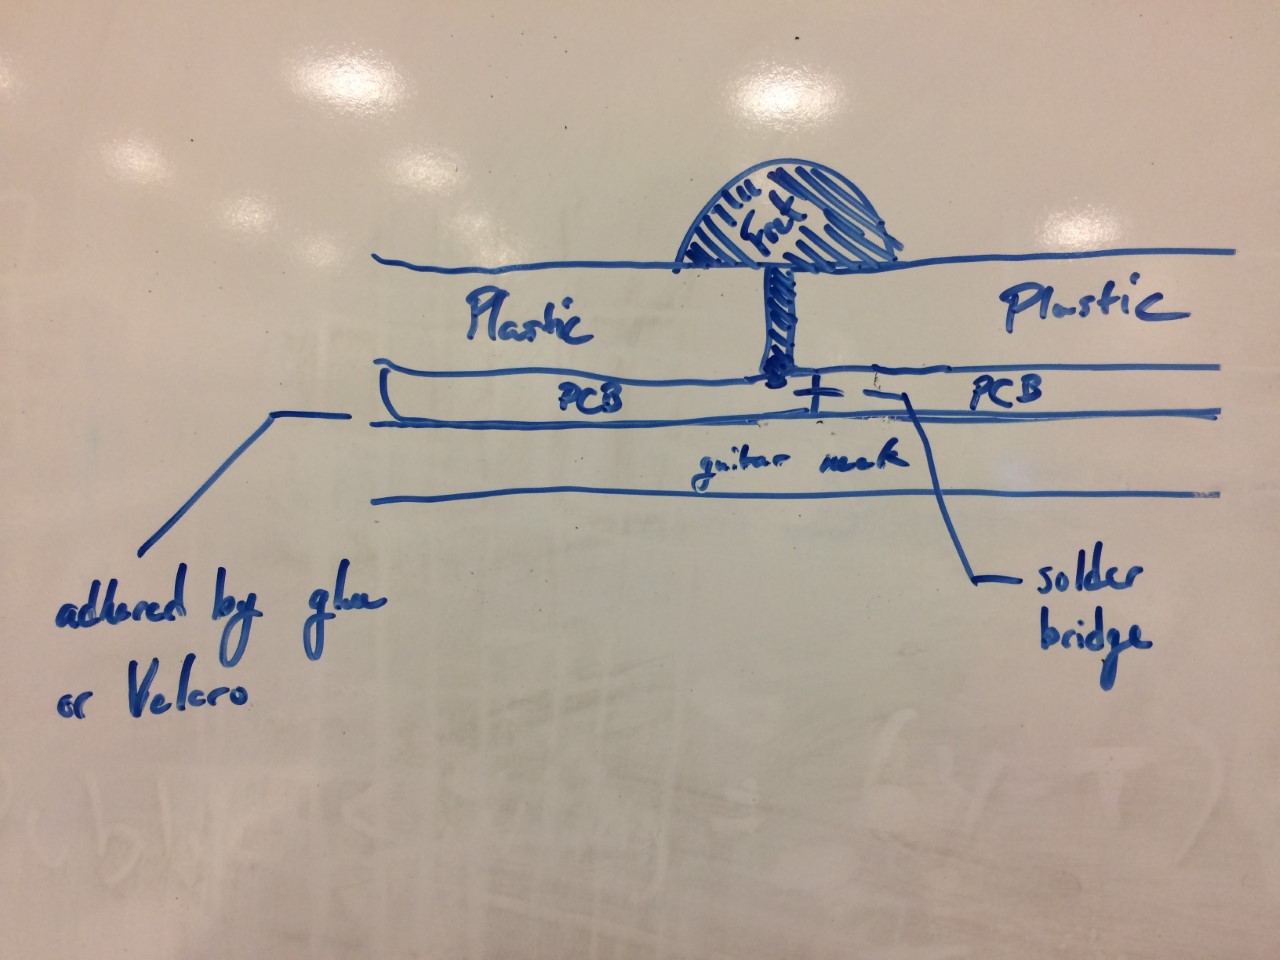 Fret
Plastic
Plastic
PCB
PCB
guitar neck
adhered by glue
or Velcro
solder
bridge